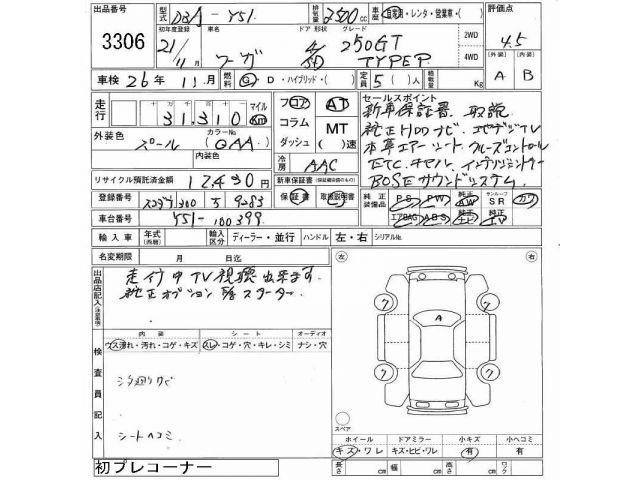 出品番号 型式 DBA-Y51 排気量 2500 cc 車歴 自家用・レンタ・営業車・( ) 評価点
3306 初年度登録 車名 ドア 形状 グレード 2WD 4.5
21/11 フーガ 4 250GT TYPE P 4WD (外装) (内装)
車検 26年 11月 燃料 G・D・ハイブリッド・( ) 定員 5( )人 積載量 Kg A B
走行 十万 千 十 マイル フロア AT セールスポイント
31,310 Km コラム MT 新車保証書 取説
外装色 カラーNo ダッシュ ( )速 純正HDDナビ
パール (QAA) 本革エアーシート クルーズコントロール
内装色 冷房 AAC ETC
リサイクル預託済金額 12,490円 新車保証書(保証継続可能のもの) BOSEサウンドシステム
登録番号 300 9283 保証書 取扱説明書 純正装備品 PS PW 純正AW サンルーフSR カワ
車台番号 Y51-100399 エアBAG ABS 純正ナビ 純正TV
輸入車 年式(西暦) 輸入区分 ディーラー・並行 ハンドル 左・右 シリアルNo.
名変期限 月 日迄
出品店記入(注意事項) 走行中TV視聴出来ます。
純正オプション スターター。
左 右
内装 シート オーディオ
ウス汚れ・汚れ・コゲ・キズ スレ・コゲ・穴・キレ・シミ ナシ・穴
検査員記入
シートヘコミ
A
ク ク
ク ク
スペア
ホイール ドアミラー 小キズ 小ヘコミ
キズ・ワレ キズ・ヒビ・ワレ 有 有
初プレコーナー 長さ cm 幅 cm 高さ cm cm